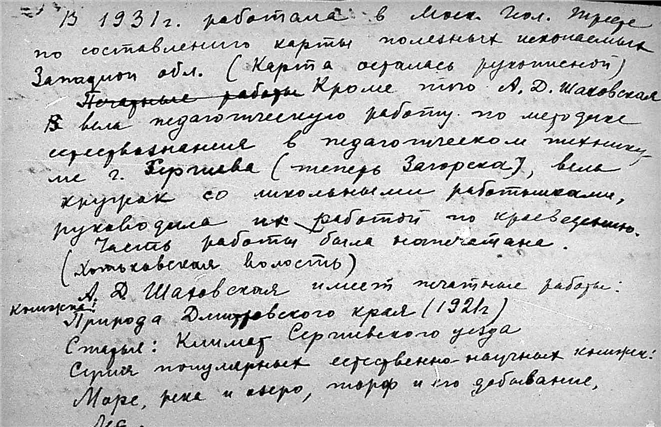 В 1931 г. работала в Моск. Гол. Тресте
по составлению карты полезных ископаемых
Западной обл. (Карта осталась рукописной)
Печатные работы Кроме того А. Д. Шаховская
вела педагогическую работу по методике
естествознания в педагогическом технику-
ме г. Сергиева (теперь Загорска), вела
кружок со школьными работниками,
руководила их работой по краеведению.
Часть работы была напечатана.
(Хотьковская волость)
А. Д. Шаховская имеет печатные работы:
Книжка:
Природа Дмитровского края (1921г
Статья: Климат Сергиевского уезда
Серия популярных естественно-научных книжек:
Море, река и озеро, торф и его добывание,
Лес.